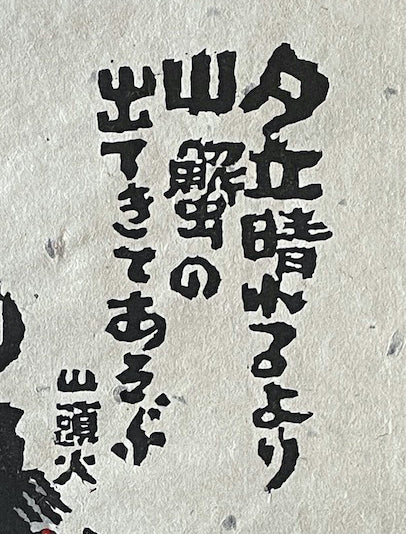 夕立晴れるより
山蟹の
出てきてあるぶ
山頭火